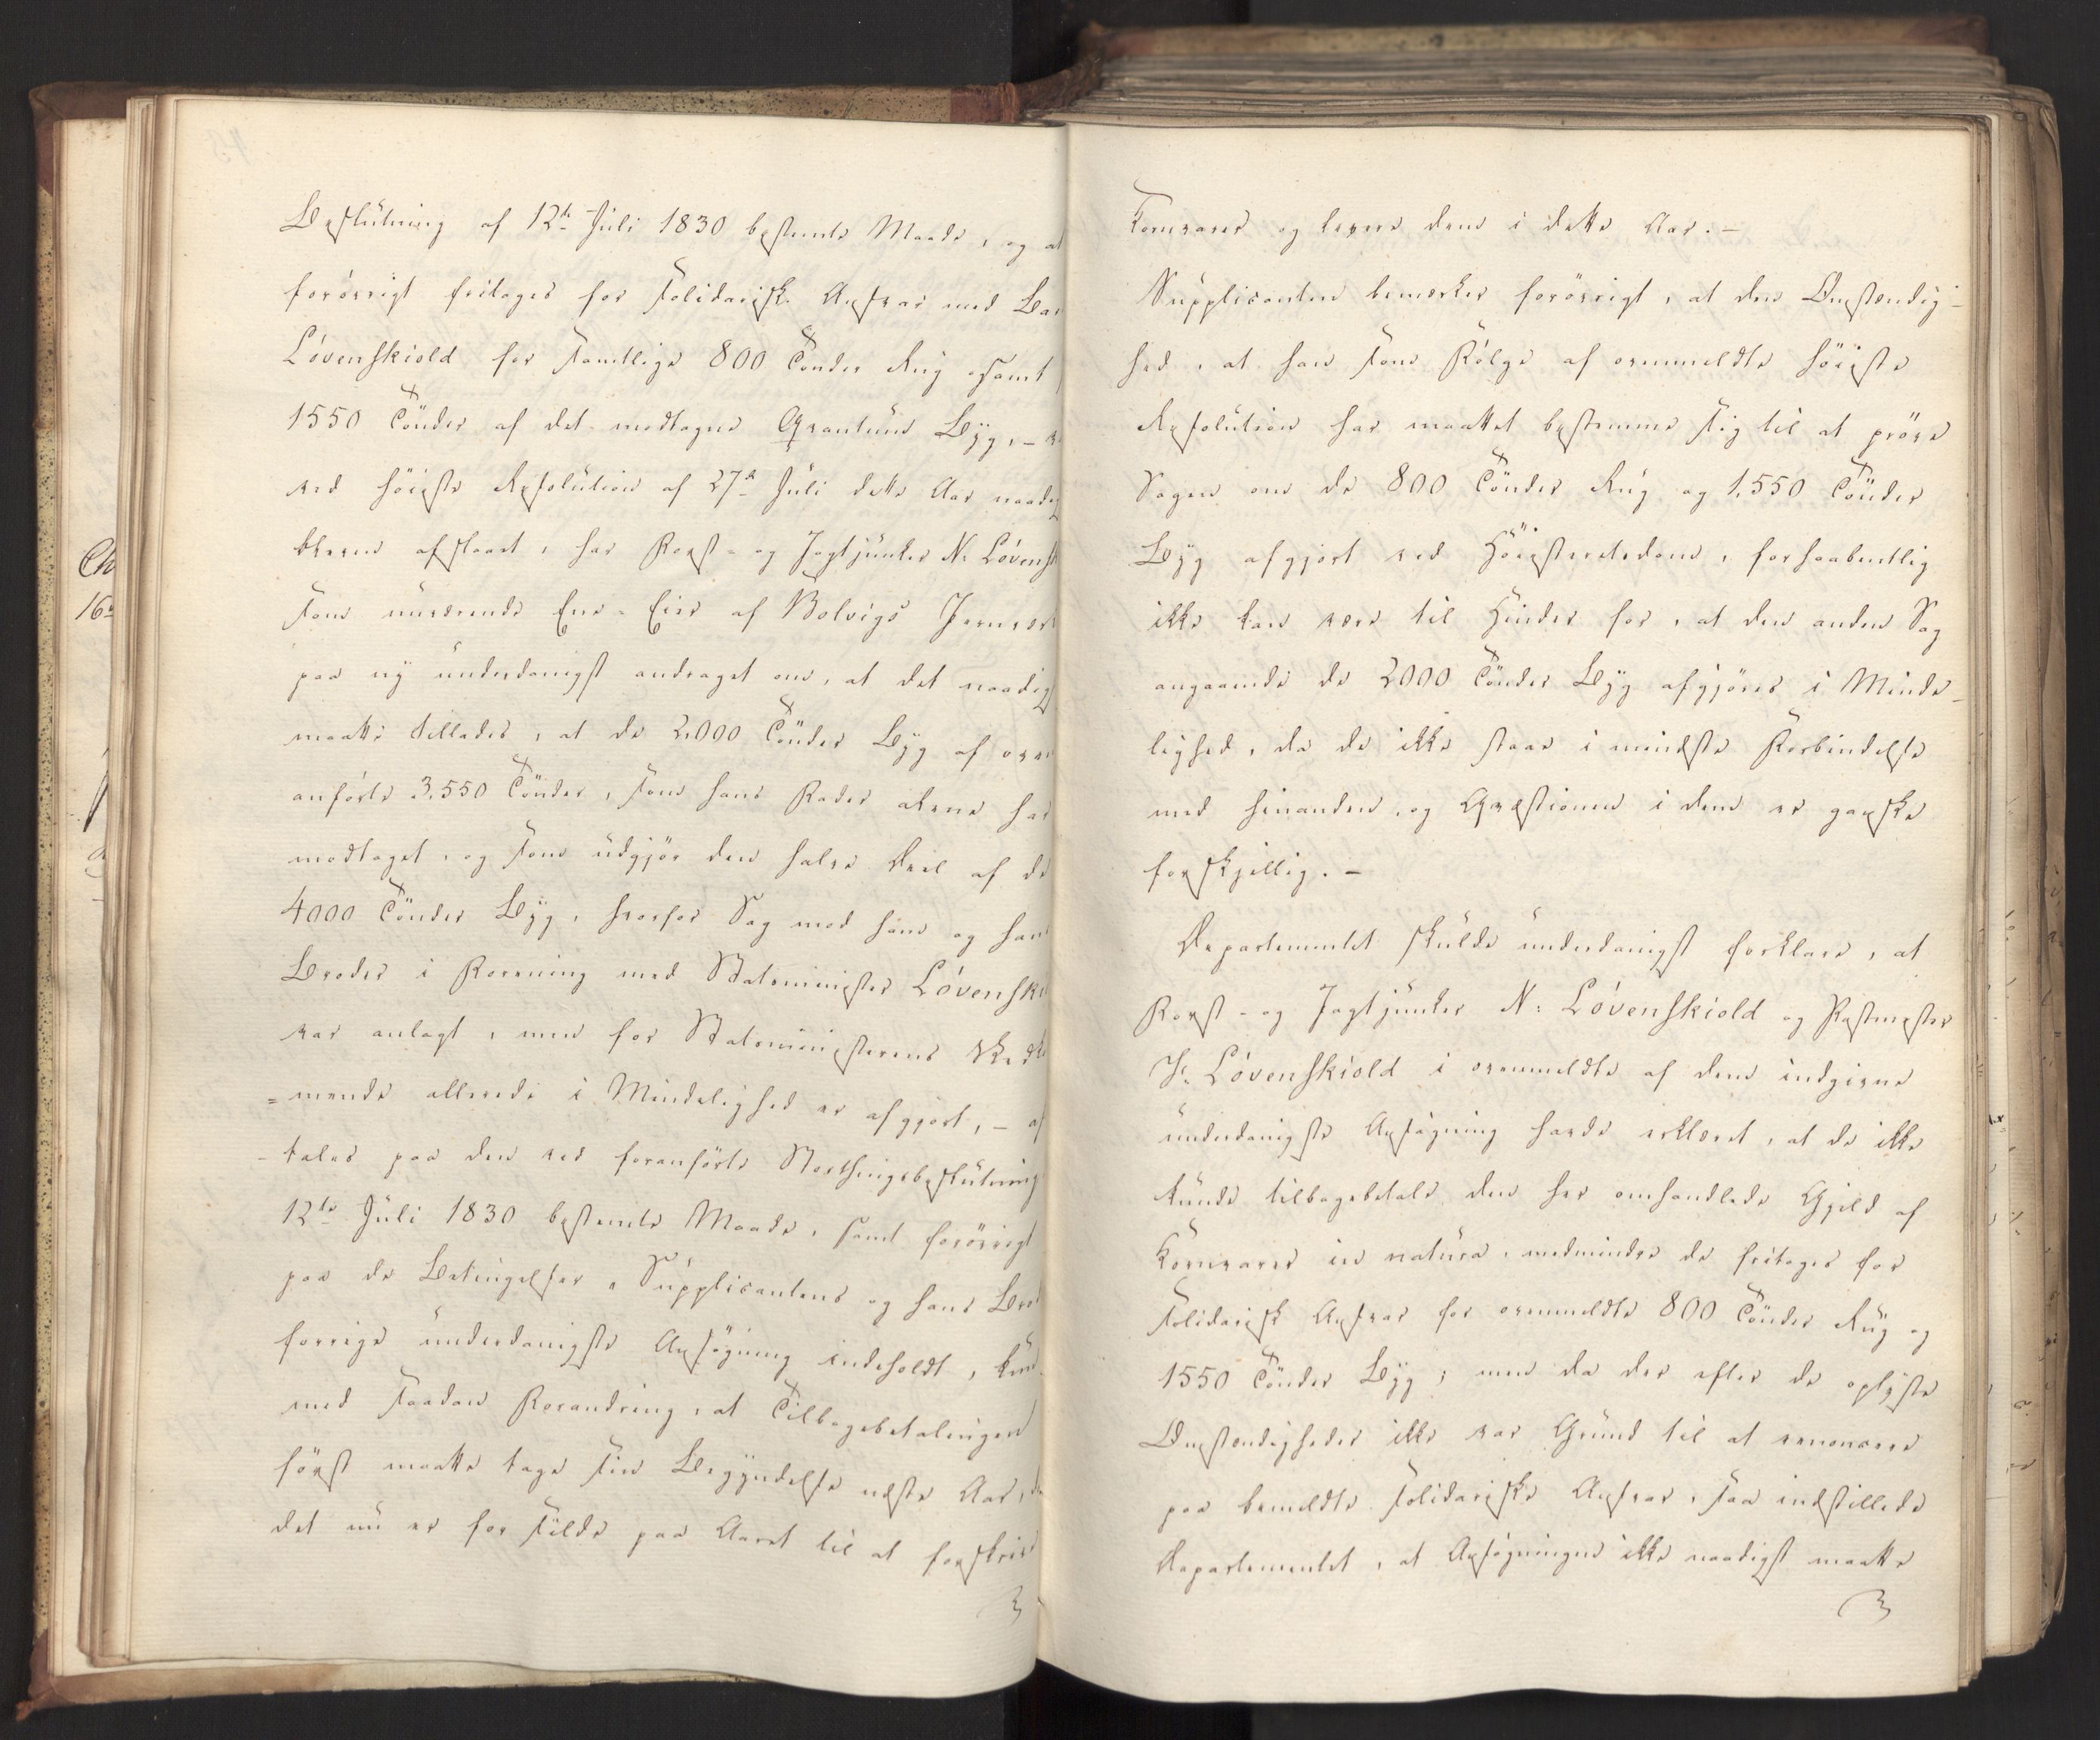 Beslutning af 12te Juli 1830 bestemte Maade, og at
forövrigt fritages for solidarisk Ansvar med Ba
Lövenskiold for samtlige 800 Tönder Rug samt
1550 Tönder af det modtagne Qvantum Byg, –
ved höieste Resolution af 27de Juli dette Aar naadig
bleven afslaaet, har Forst- og Jagtjunker N: Lövensk
som nuværende Ene-Eier af Bolvigs Jernværk
paa ny underdanigst andraget om, at det naadigs
maatte tillades, at de 2000 Tönder Byg af oven
anförte 3.550 Tönder, som hans Fader alene har
modtaget, og som udgjör den halve Deel af de
4000 Tönder Byg, hvorfor Sag mod ham og hans
Broder i Forening med Statsminister Lövenski
var anlagt, men for Statsministerens Vedk
=mende allerede i Mindelighed er afgjort, –
tales paa den ved foranförte Storthingsbeslutning
12te Juli 1830 bestemte Maade, samt forövrigt
paa de Betingelser, Supplicantens og hans Brod
forrige underdanigste Ansögning indeholdt, kun
med saadan Forandring, at Tilbagebetalingen
först maatte tage sin Begyndelse næste Aar, da
det nu er for silde paa Aaret til at forskrive
Ch
16
Kornvarer og levere dem i dette Aar. –
Supplicanten bemærker forövrigt, at den Omstændig-
hed, at han som Fölge af ovenmeldte höieste
Resolution har maattet bestemme sig til at pröve
Sagen om de 800 Tönder Rug og 1,550 Tönder
Byg afgjort ved Höiesteretsdom, forhaabentlig
ikke kan være til Hinder for, at den anden Sag
angaaende de 2000 Tönder Byg afgjöres i Minde-
lighed, da de ikke staae i mindste Forbindelse
med hinanden, og Qvæstionen i dem er ganske
forskjellig. –
Departementet skulde underdanigst forklare, at
Forst- og Jagtjunker N: Lövenskiold og Postmester
H: Lövenskiold i ovenmeldte af dem indgivne
underdanigste Ansögning havde erklæret, at de ikke
kunde tilbagebetale den her omhandlede Gjeld af
Kornvarer in natura, medmindre de fritages for
solidarisk Ansvar for ovenmeldte 800 Tönder Rug og
1550 Tönder Byg; men da der efter de oplyste
Omstændigheder ikke var Grund til at renoncere
paa bemeldte solidariske Ansvar, saa indstillede
Departementet, at Ansögningen ikke naadigst maatte